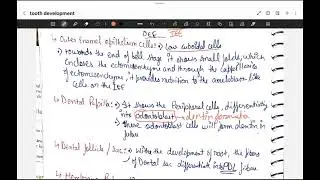 tooth development
DEF IEE
→ Outer Enamel epithelium cells → low cuboidal cells
→ towards the end of bell stage it shows small folds, which
encloses the ectomesenchyme and through the capillaries
of ectomesenchyme, it provides nutrition to the ameloblast-like
cells on the IEF
→ Dental Papilla → It shows the Peripheral cells, differentiate
into odontoblast → dentin formation
→ These odontoblast cells will form dentin in
future
→ Dental follicle / Sac → With the development of root, the fibres
of Dental sac differentiate into PDL fibres